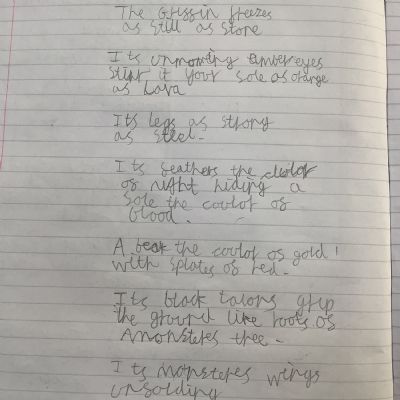 The Griffin freezes
as still as stone
Its unmoving amber eyes
it your sole as orange
as Lava
Its legs as strong
as steel.
Its feathers the coulor
of night hiding a
sole the coulor of
blood.
A beak the coulor of gold
with splates of red.
Its black talons grip
the ground like roots of
A monsteres tree.
Its monsteres wings
unfolding